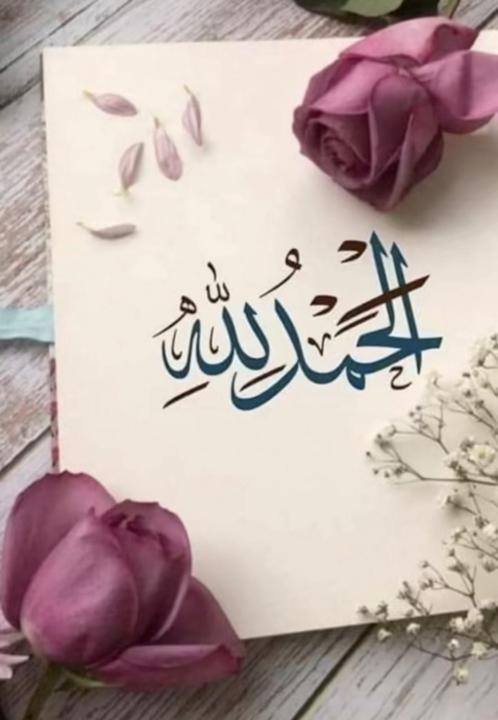 الْحَمْدُ لِلّٰهِ